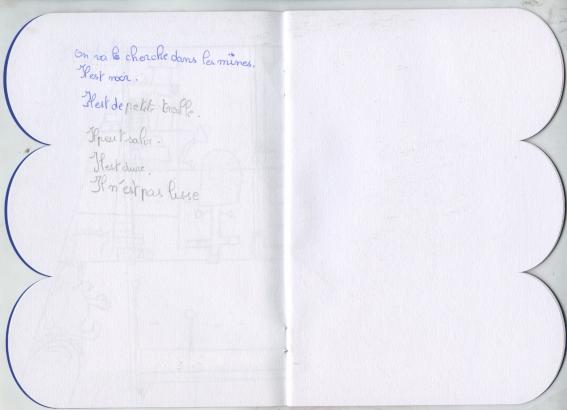 On va le cherche dans les mines.
Il est noir.
Il est de petite traille.
Il peut salir.
Il est dure.
Il n'est pas lisse